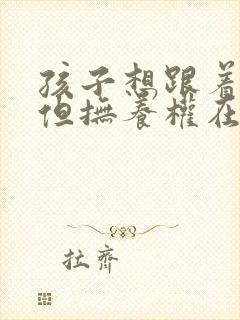 孩子想跟着
但撫养權在
拉齊